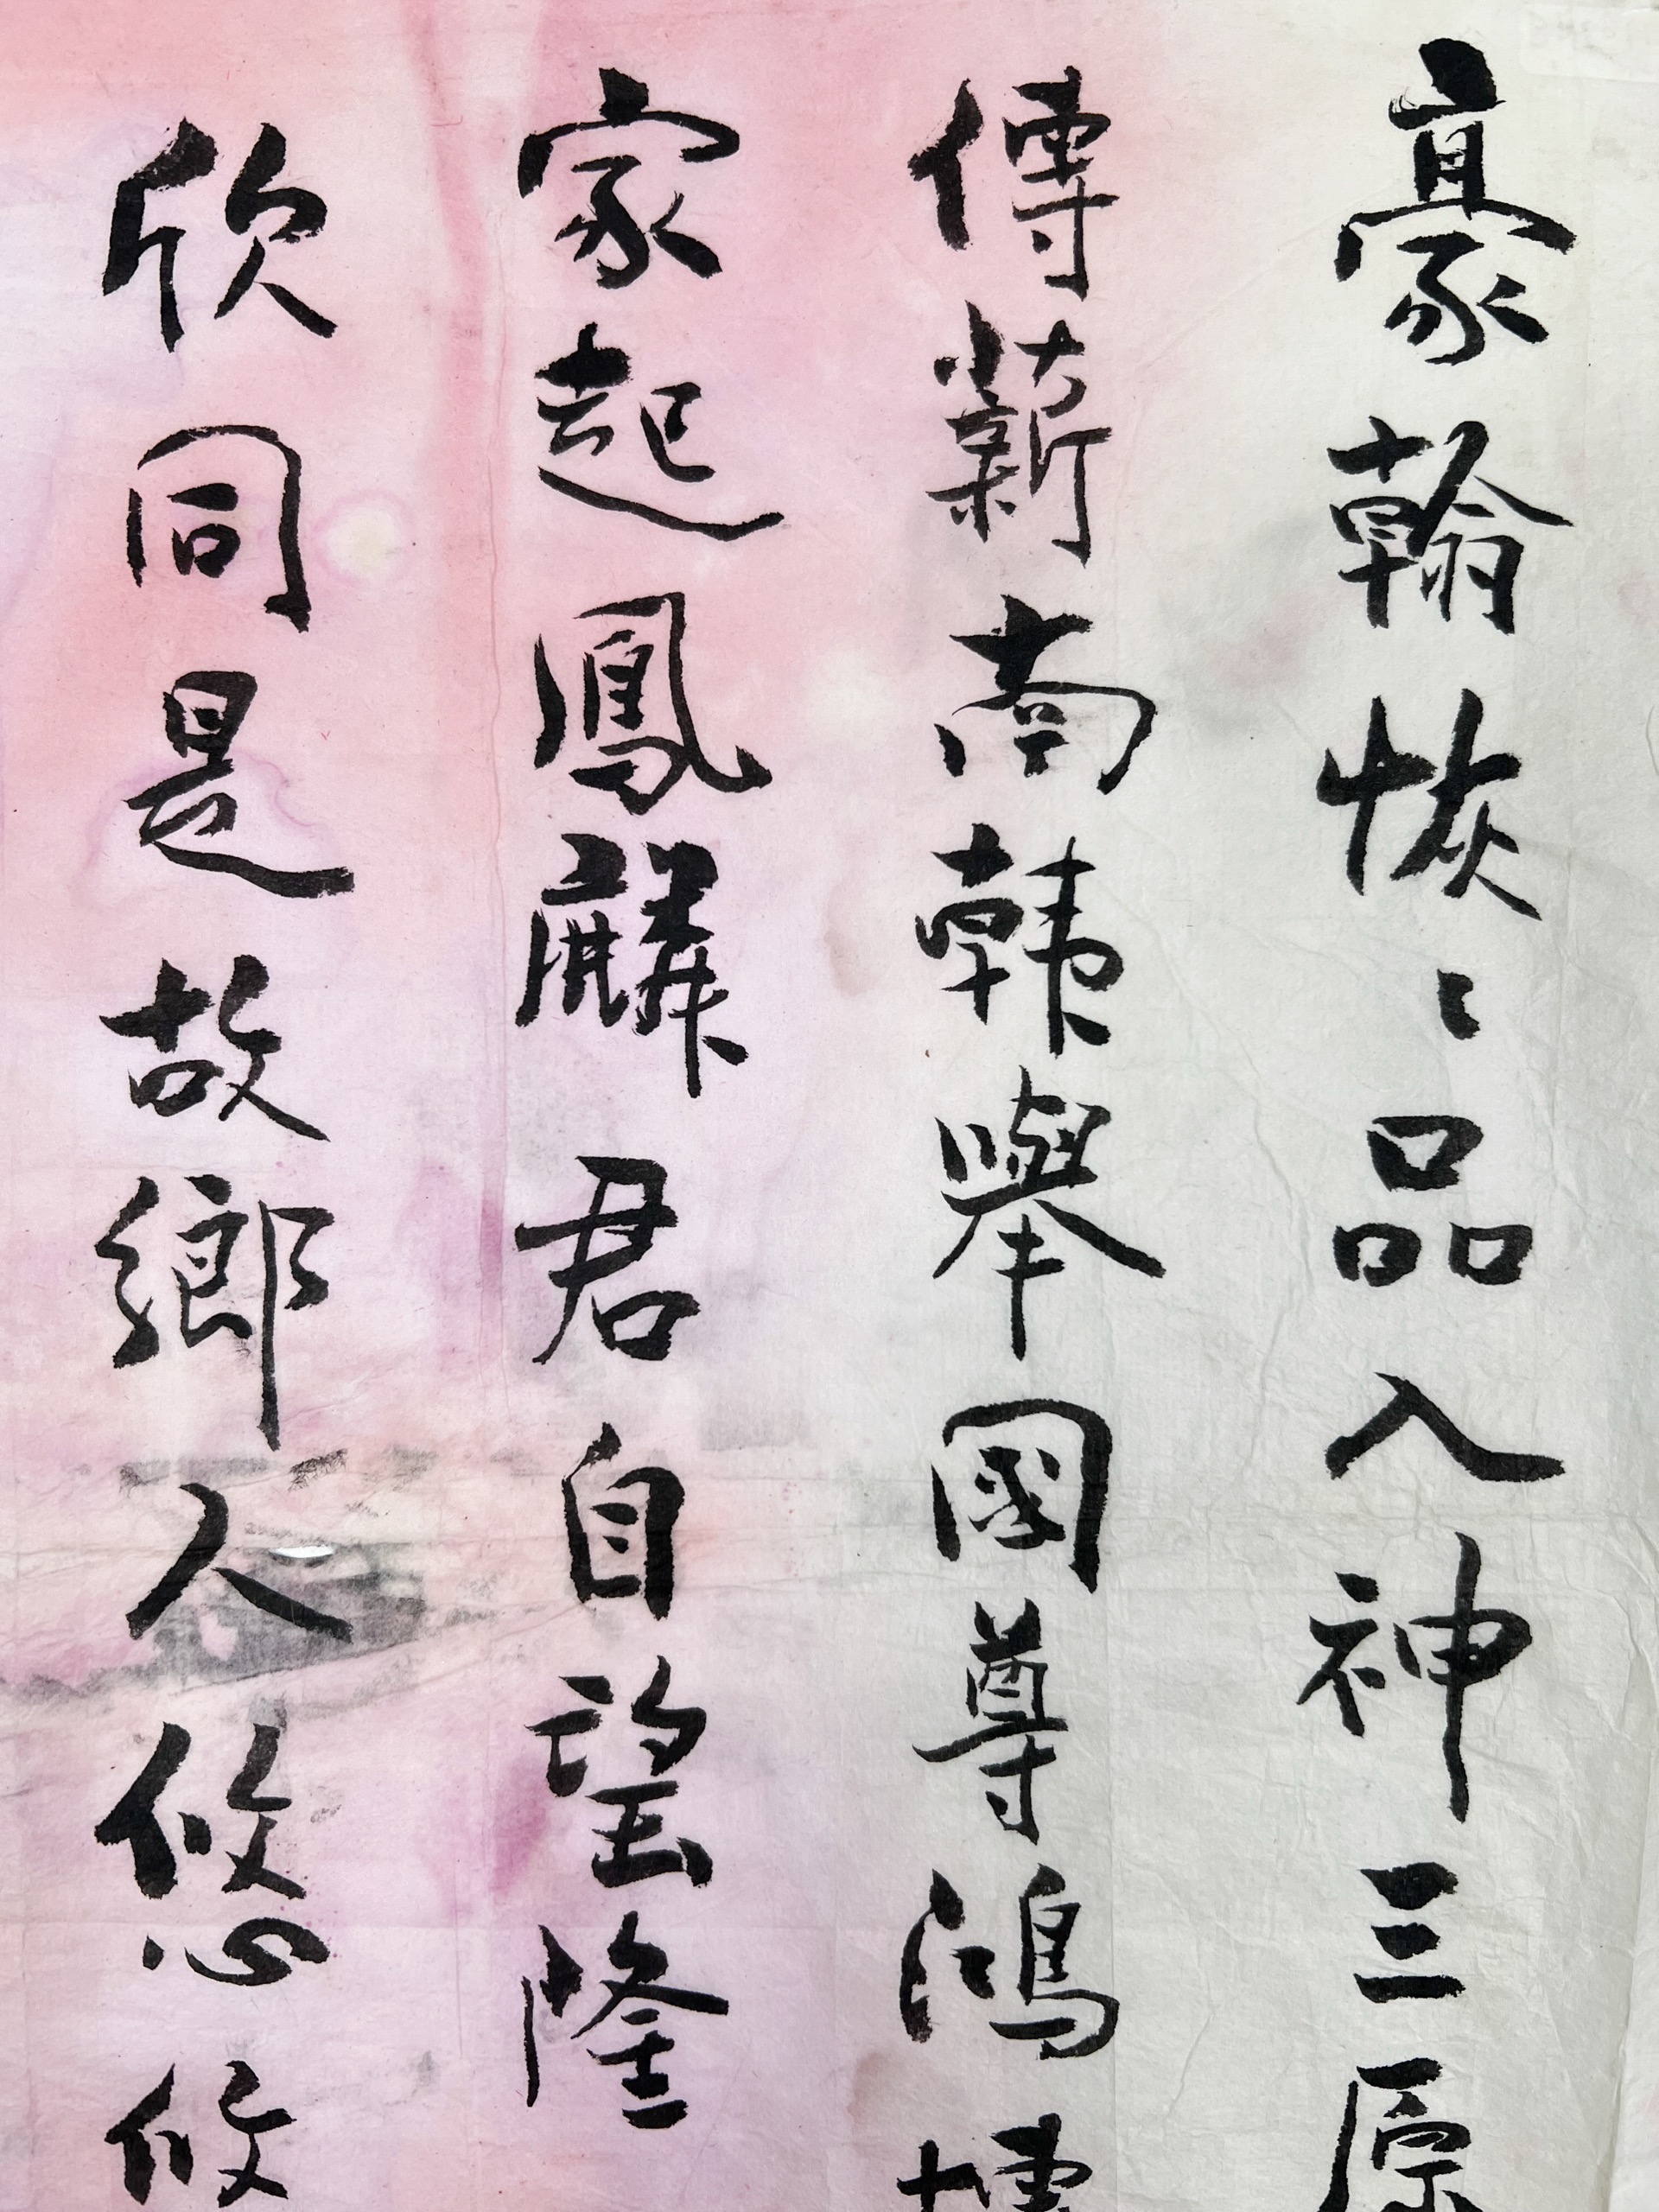 豪翰恢〻品入神三原
傳薪南韓舉國尊鴻博
家起鳳麟君自望隆
欣同是故鄉人悠悠